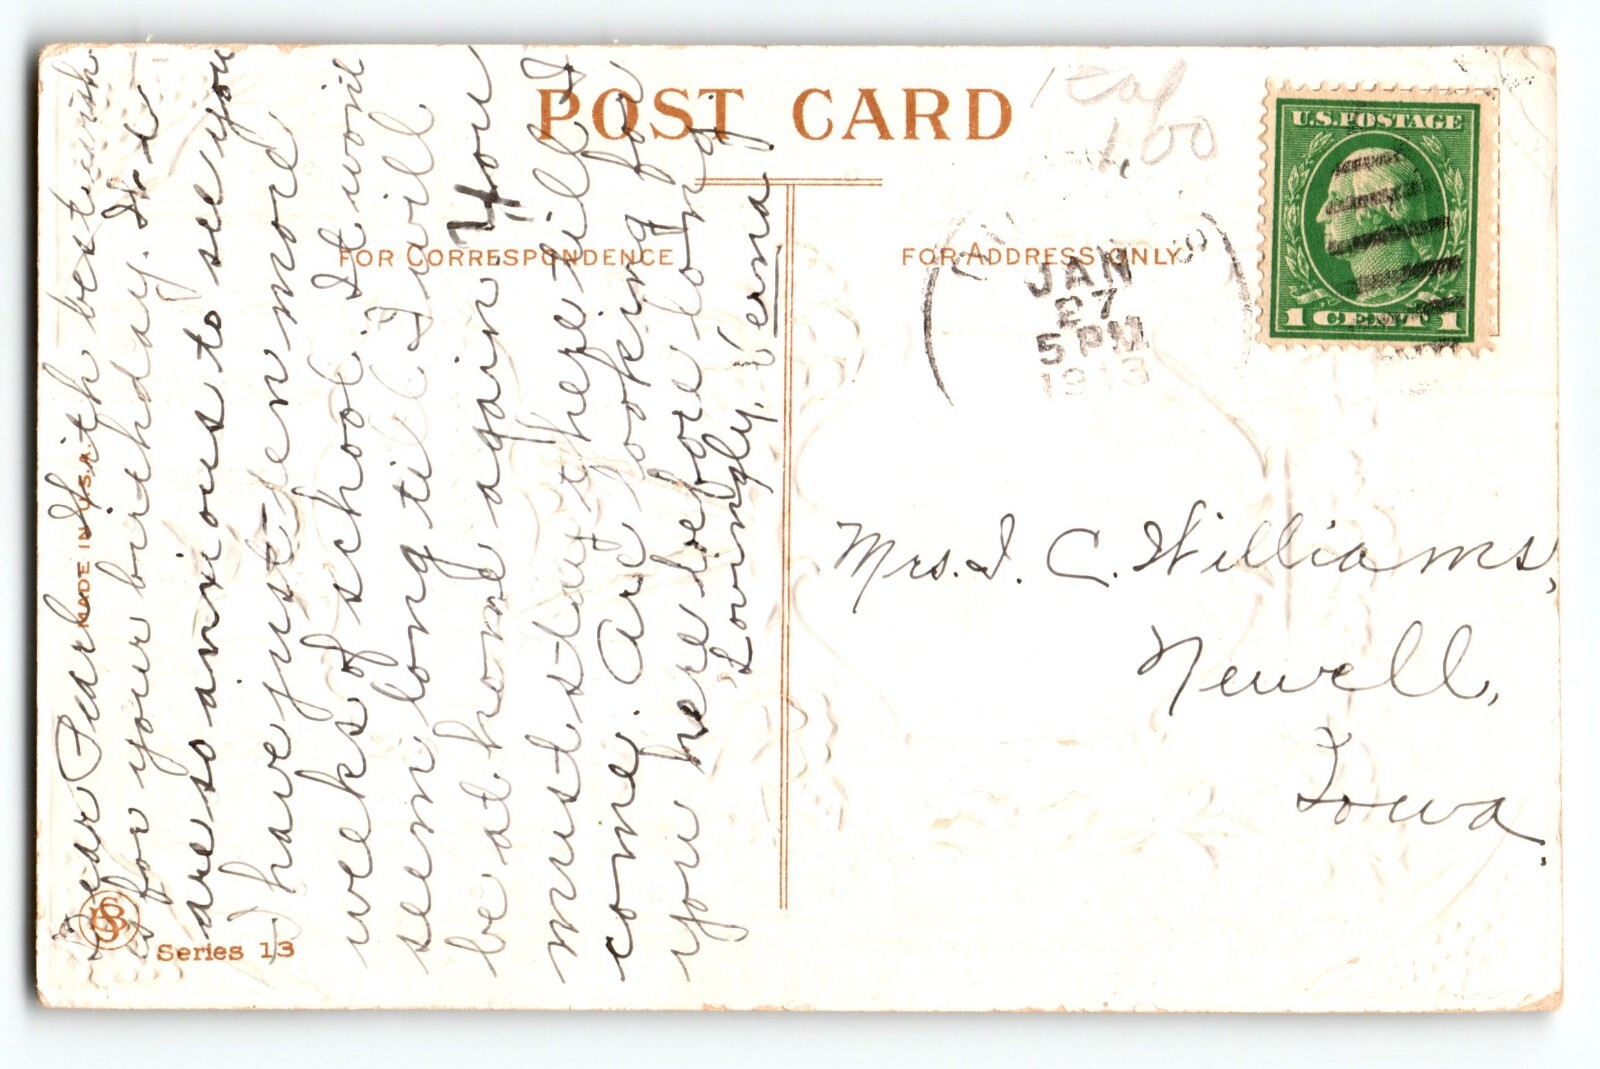 POST CARD
FOR CORRESPONDENCE
FOR ADDRESS ONLY
U.S. POSTAGE
1 CENT 1
JAN
27
5 PM
1913
1.00
Dear Pearl With best wish
for your birthday. We
are so anxious to see you
I have just ten more
weeks of school. It won't
seem long till I will
be at home again. You
must stay there till I
come. Are looking for
you here before long
Lovingly, Verna
Mrs. I. C. Williams,
Newell,
Iowa.
MADE IN U.S.A.
Series 13